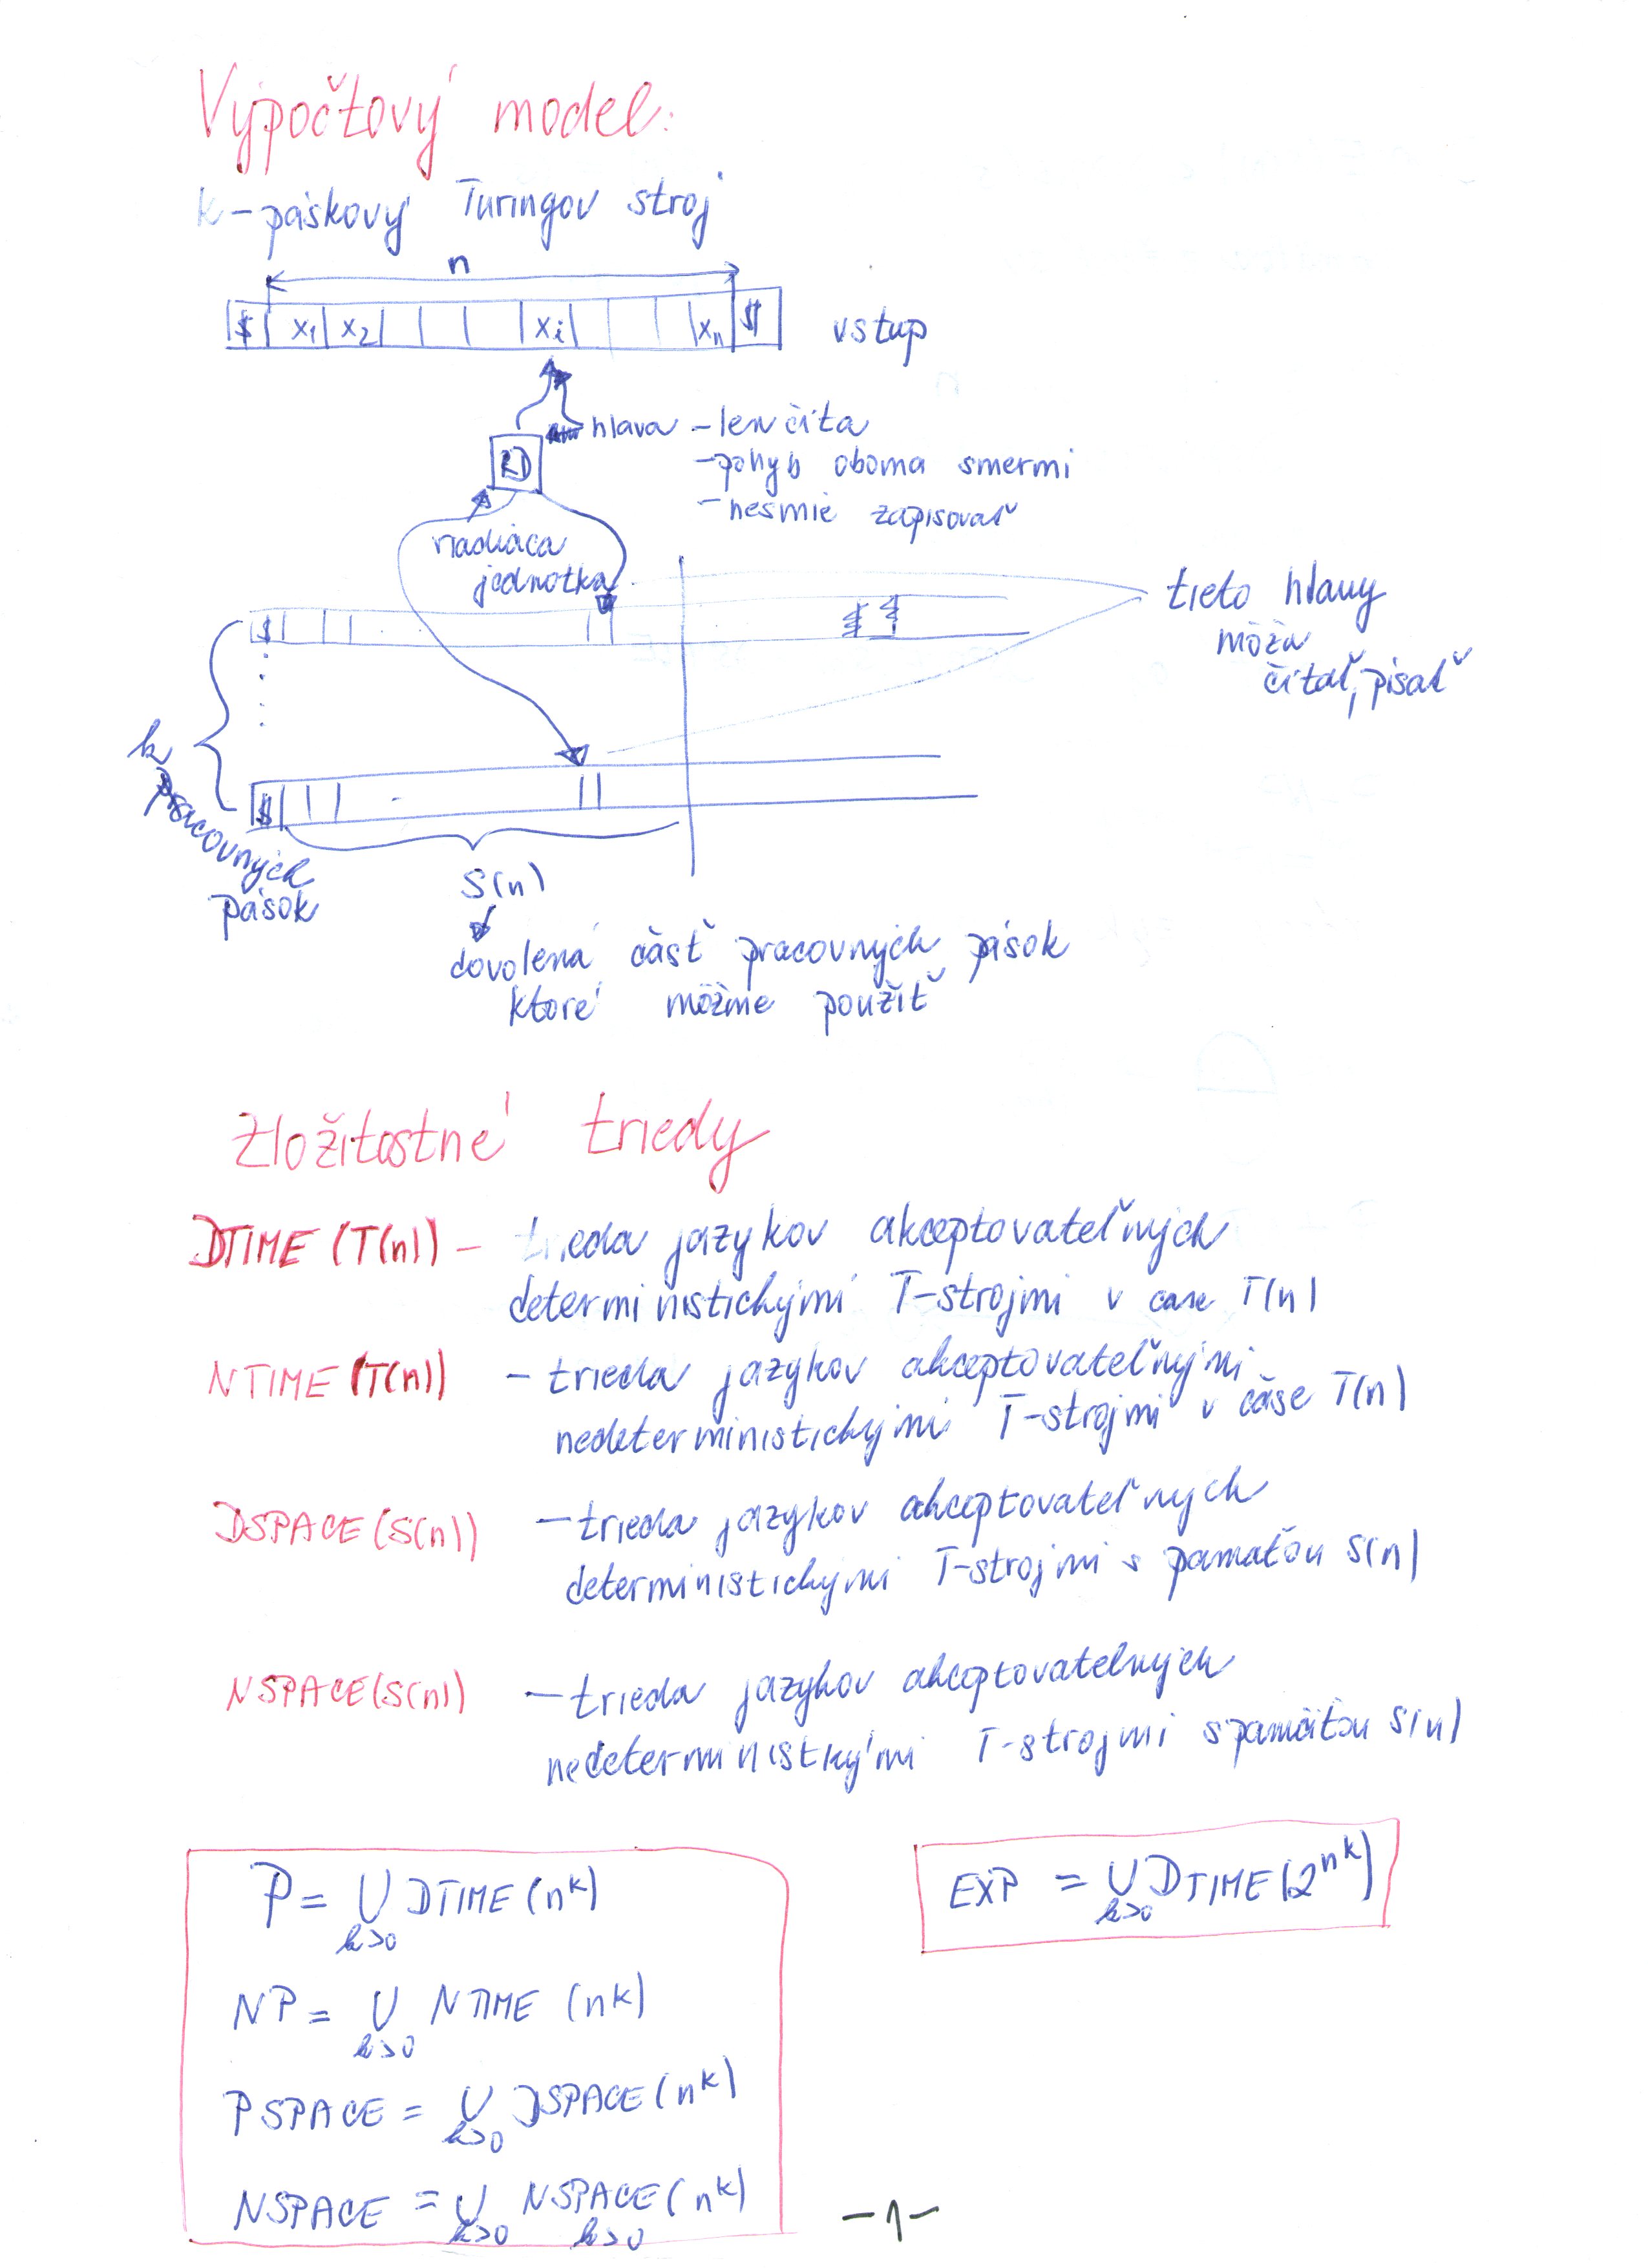 Výpočtový model:
k-páskový Turingov stroj
n
$ x₁ x₂ xᵢ xₙ $ vstup
hlava - len číta
- pohyb oboma smermi
- nesmie zapisovať
riadiaca
jednotka
tieto hlavy
môžu
čítať, písať
$
k
pracovných
pások
$
S(n)
dovolená časť pracovných pások
ktoré môžme použiť
Zložitostné triedy
DTIME (T(n)) - trieda jazykov akceptovateľných
deterministickými T-strojmi v case T(n)
NTIME (T(n)) - trieda jazykov akceptovateľnými
nedeterministickými T-strojmi v čase T(n)
DSPACE (S(n)) - trieda jazykov akceptovateľných
deterministickými T-strojmi s pamaťou S(n)
NSPACE (S(n)) - trieda jazykov akceptovatelných
nedeterministkými T-strojmi s pamäťou S(n)
P = ∪ DTIME (n^k)
k>0
EXP = ∪ DTIME (2^n^k)
k>0
NP = ∪ NTIME (n^k)
k>0
PSPACE = ∪ DSPACE (n^k)
k>0
NSPACE = ∪ NSPACE (n^k)
k>0 k>0
-1-